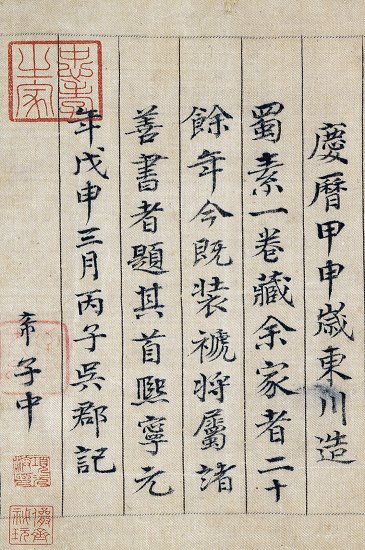 慶曆甲申歲東川造
蜀素一卷藏余家者二十
餘年今既裝褫將屬諸
善書者題其首熙寧元
年戊申三月丙子吳郡記
子中
忠孝之家